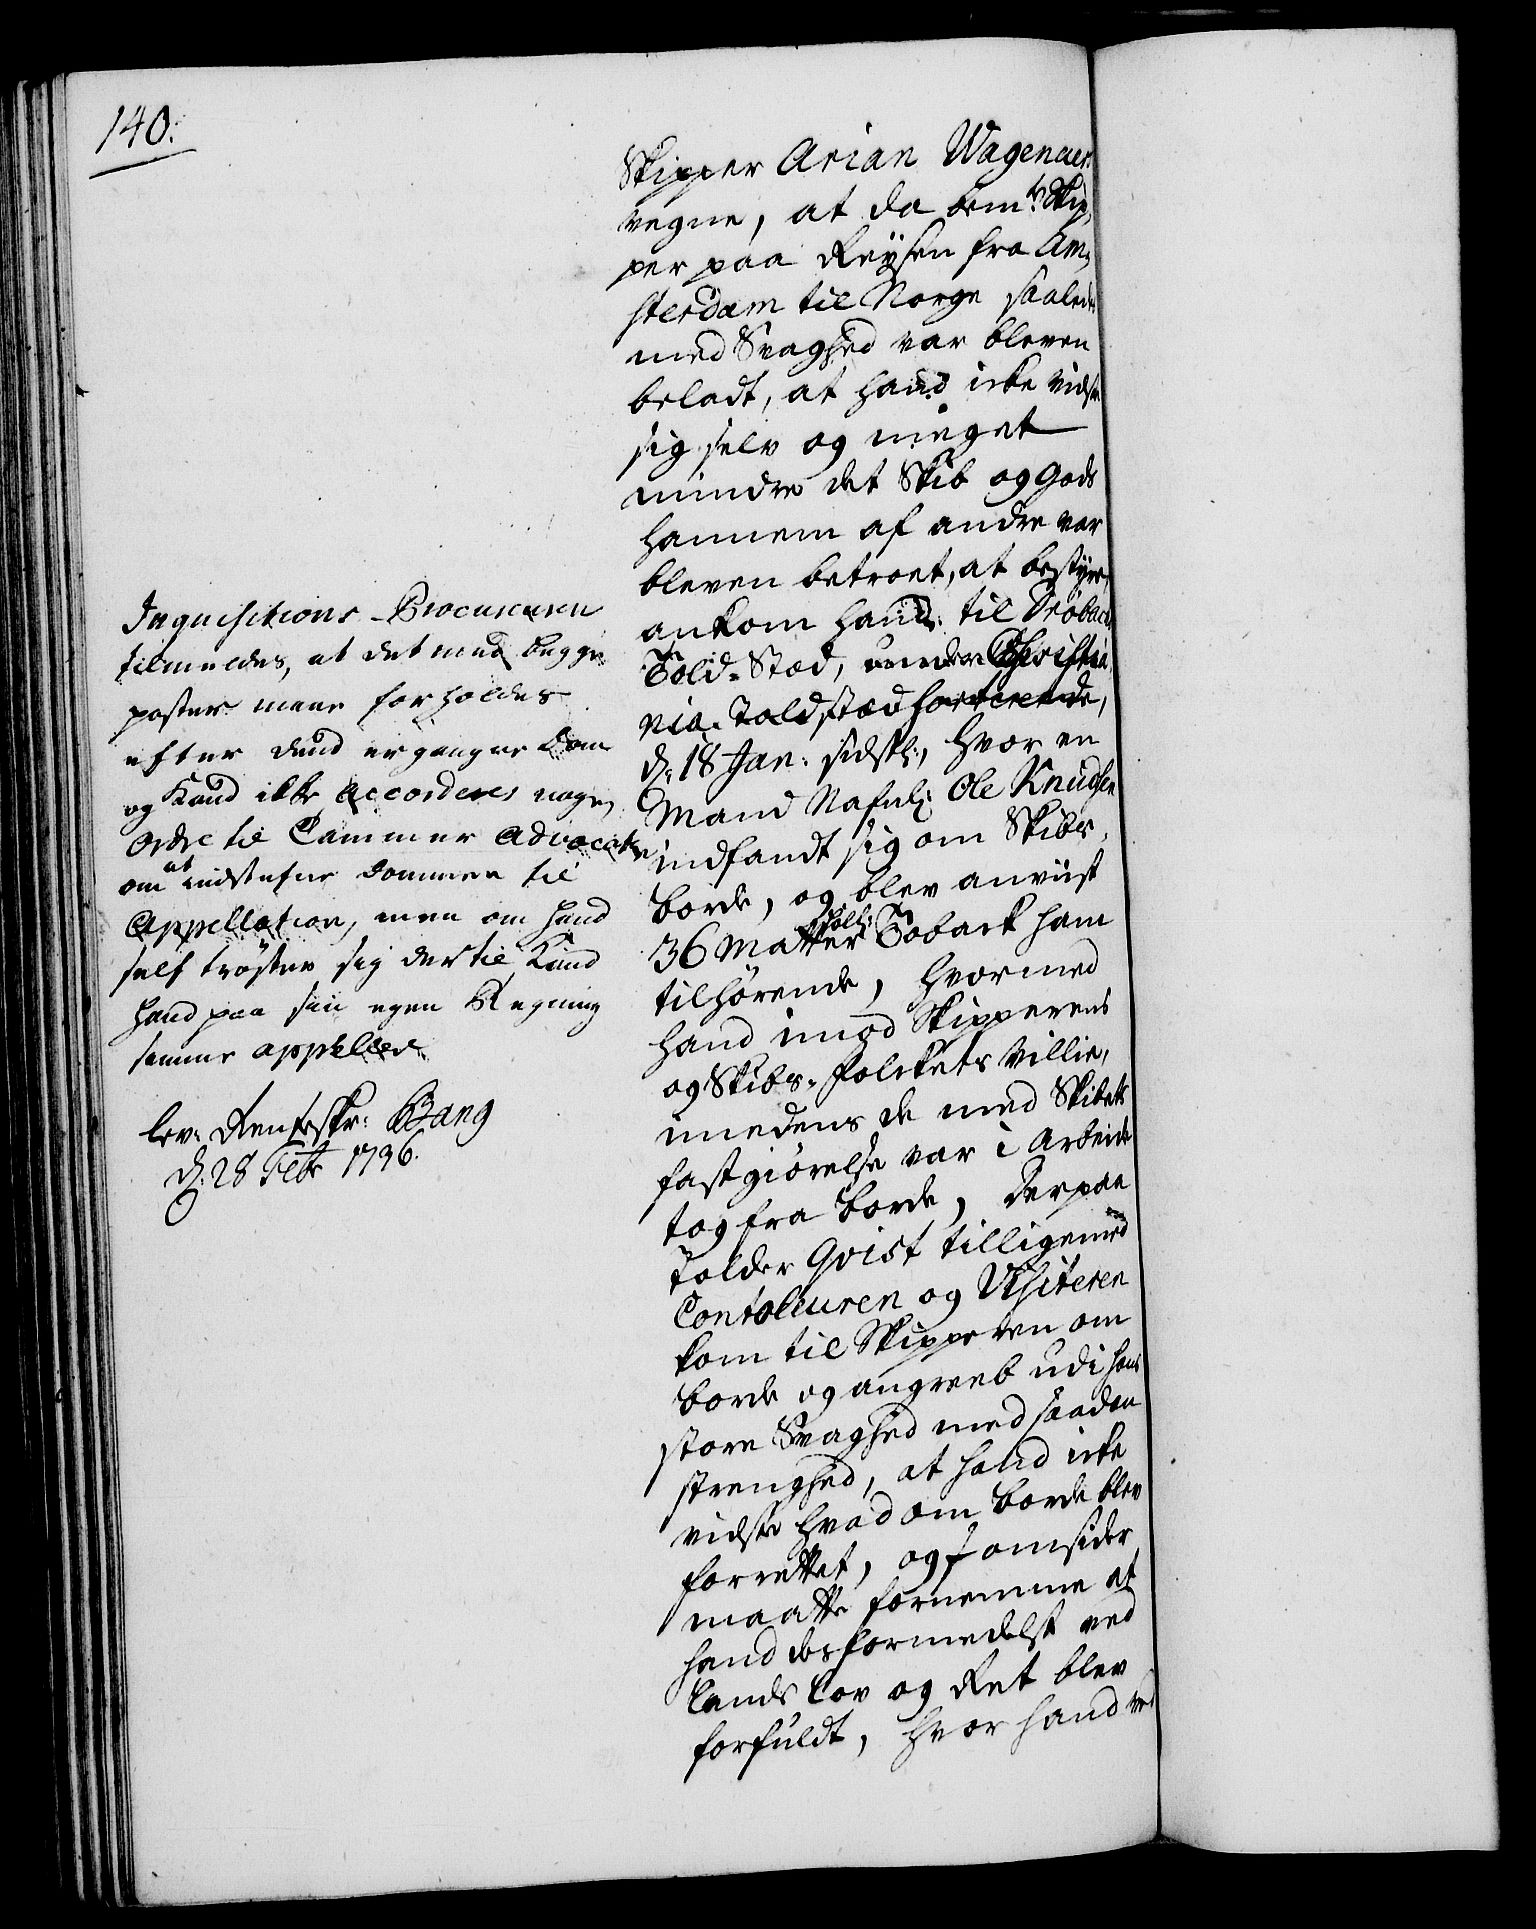 140.
Skipper Arian Wagenaers
vegne, at da bemte Skip-
per paa Reysen fra Am-
sterdam til Norge saaledes
med Svaghed var bleven
beladt, at hand icke vidste
sig selv og meget
mindre det Skib og Gods
hannem af andre var
bleven betroet, at bestyre,
ankom hand til Drøbacks
Told-Stæd, under Christia-
nia Toldstæd sorterende,
d. 18 Jan: sidstl:, hvor en
Mand Nafnl: Ole Knudsen
indfandt sig om Skibs-
borde, og blev anviist
36 Matter Toback ham
tilhørende, hvormed
hand imod Skipperens
og Skibs-Folckets Villie,
imedens de med Skibets
fastgiørelse var i Arbeide
tog fra borde, Derpaa
Tolder Qvist tilligemed
Contoleuren og Visiteren
kom til Skipperen om
borde og angreeb udi hans
store Svaghed med saadan
strenghed, at hand icke
vidste hvad om borde blev
forrettet, og omsider
maatte fornemme at
hand desformedelst ved
Lands Lov og Ret blev
forfuldt, hvor hand ved
Inquisitions-Procureuren
tilmeldes, at det med begge
poster maae forholdes
efter dend ergangne Dom
og Kand ikke accorderes nogen
Ordre til Cammer Advocaten
om at indstefne Dommen til
Appellation, men om hand
self trøster sig dertil Kand
hand paa sin egen Regning
samme appellere
lev: Renteskr: Bang
d. 28 Febr 1736.